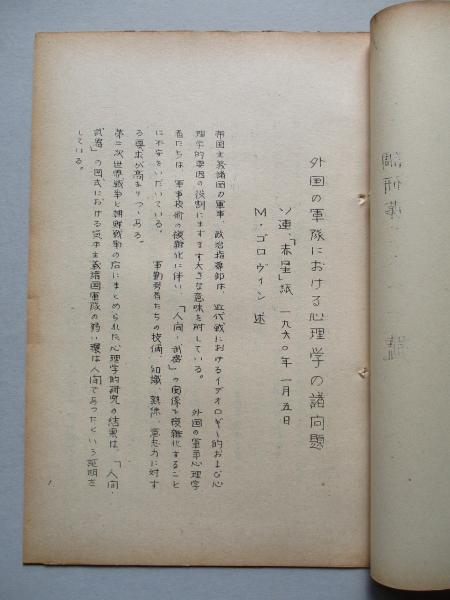 外国の軍隊における心理学の諸问題
ソ連、「赤星」紙 一九六〇年一月五日
M・ゴロヴィン 述
帝国主義諸国の軍事、政治指導部は、近代戦におけるイデオロギー的および心
理学的要因の役割にますます大きな意味を附している。 外国の軍事心理学
者たちは、軍事技術の複雑化に伴い、「人间・武器」の関係を複雑化すること
に不安をいだいている。 軍勤労者たちの技倆、知識、熟練、意志力に対す
る要求が高まりつゝある。
第二次世界戦争と朝鮮戦争の后にまとめられた心理学的研究の結果は、「人间・
武器」の図式における資本主義諸国軍隊の弱い環は人间であったという証明を
している。